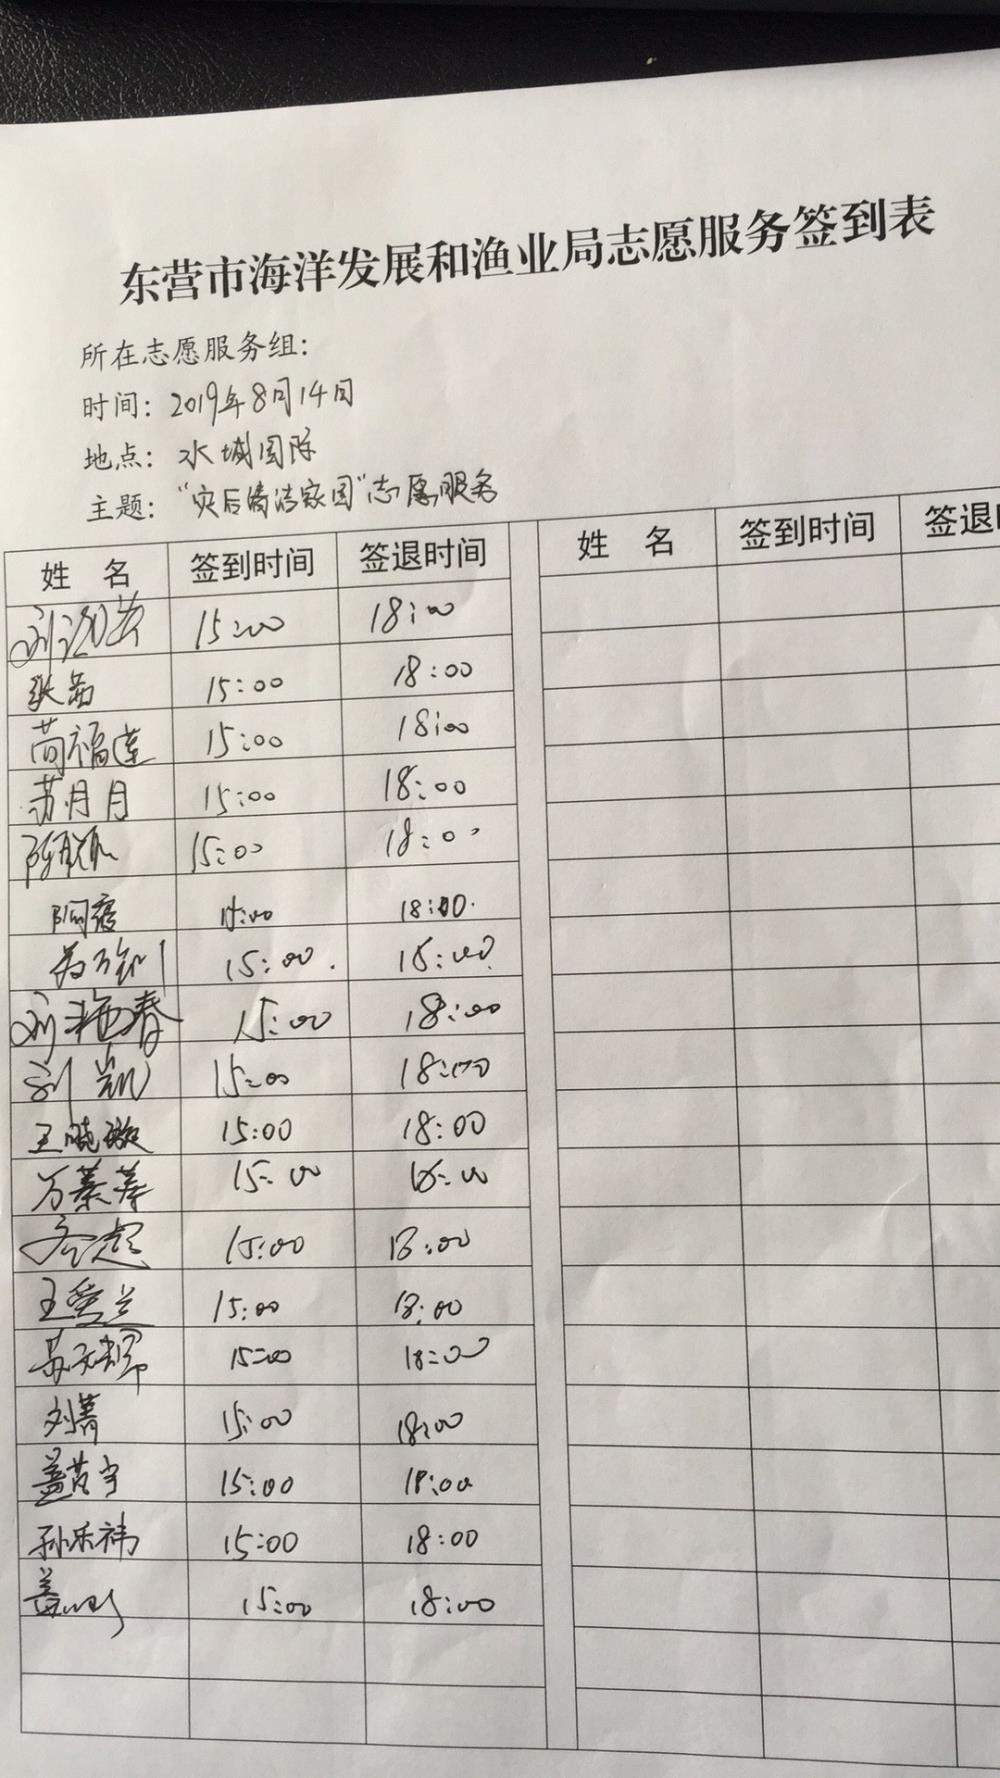 东营市海洋发展和渔业局志愿服务签到表
所在志愿服务组：
时间：2019年8月14日
地点：水城国际
主题："灾后清洁家园"志愿服务
姓 名 签到时间 签退时间 姓 名 签到时间 签退时
刘 15:00 18:00
张茜 15:00 18:00
苘福莲 15:00 18:00
苏月月 15:00 18:00
陈 15:00 18:00
15:00 18:00
15:00 18:00
刘艳春 15:00 18:00
刘凯 15:00 18:00
王晓璇 15:00 18:00
万蓁蓁 15:00 18:00
齐超 15:00 18:00
王爱兰 15:00 18:00
15:00 18:00
刘菁 15:00 18:00
盖芳宇 15:00 18:00
孙乐祎 15:00 18:00
15:00 18:00